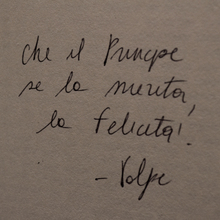 che il Principe
se la merita,
la felicità!
- Volpe